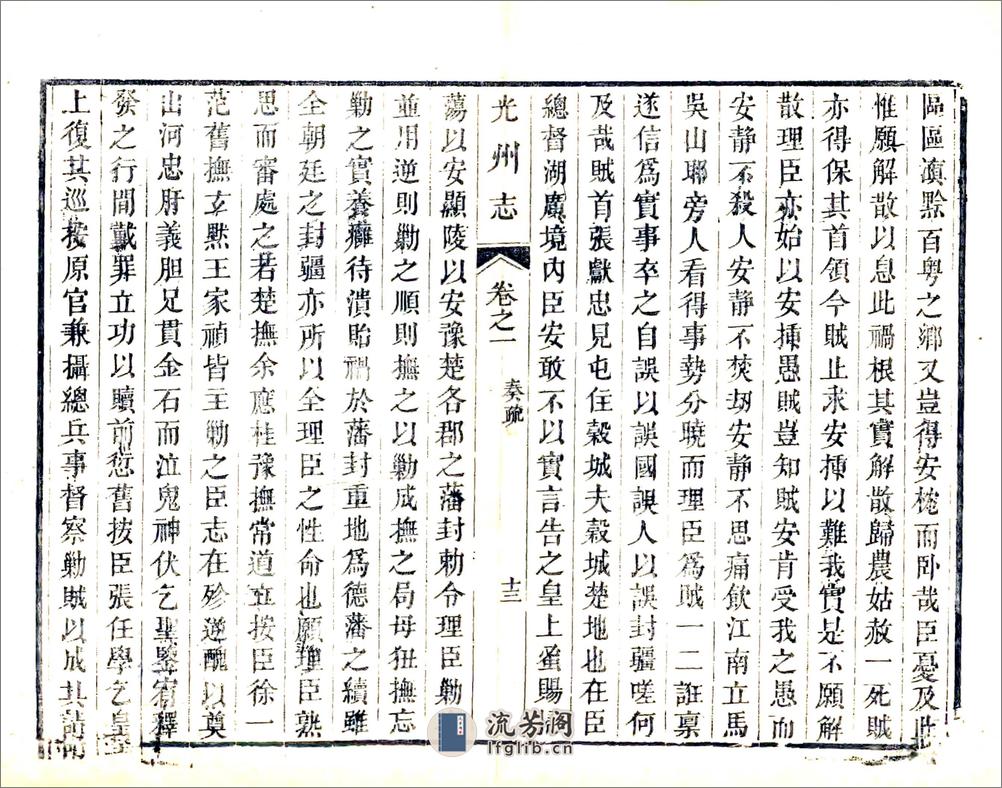 區區滇黔百粵之鄉又豈得安枕而卧哉臣憂及此
惟願解散以息此禍根其實解散歸農姑赦一死賊
亦得保其首領今賊止求安揷以難我實是不願解
散理臣亦始以安揷愚賊豈知賊安肯受我之愚而
安靜不殺人安靜不焚刼安靜不思痛飲江南立馬
吳山耶旁人看得事勢分曉而理臣爲賊一二誑禀
遂信爲實事卒之自誤以誤國誤人以誤封疆嗟何
及哉賊首張獻忠見屯住榖城夫榖城楚地也在臣
總督湖廣境內臣安敢不以實言告之皇上蚤賜
光州志
卷之一
奏疏
十三
蕩以安顯陵以安豫楚各郡之藩封勅令理臣勦
並用逆則勦之順則撫之以勦成撫之局毋狃撫忘
勦之實養癰待潰貽禍於藩封重地爲德藩之續雖
全朝廷之封疆亦所以全理臣之性命也願理臣熟
思而審處之若楚撫余應桂豫撫常道立按臣徐一
范舊撫玄黙王家禎皆主勦之臣志在殄逆醜以奠
山河忠肝義胆足貫金石而泣鬼神伏乞聖鑒宥釋
發之行間戴罪立功以贖前愆舊按臣張任學乞皇
上復其巡按原官兼攝總兵事督察勦賊以成其
流芳阁
lfglib.cn